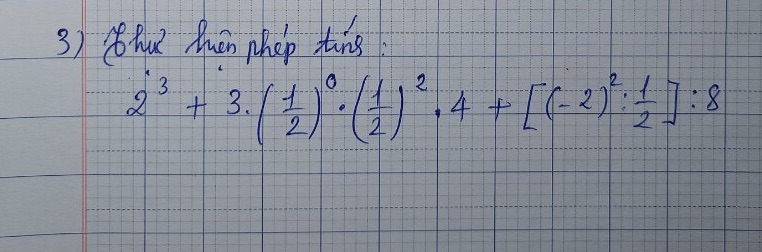 3) Thực hiện phép tính:
2³ + 3.(1/2)⁰.(1/2)².4 + [(-2)²:1/2]:8